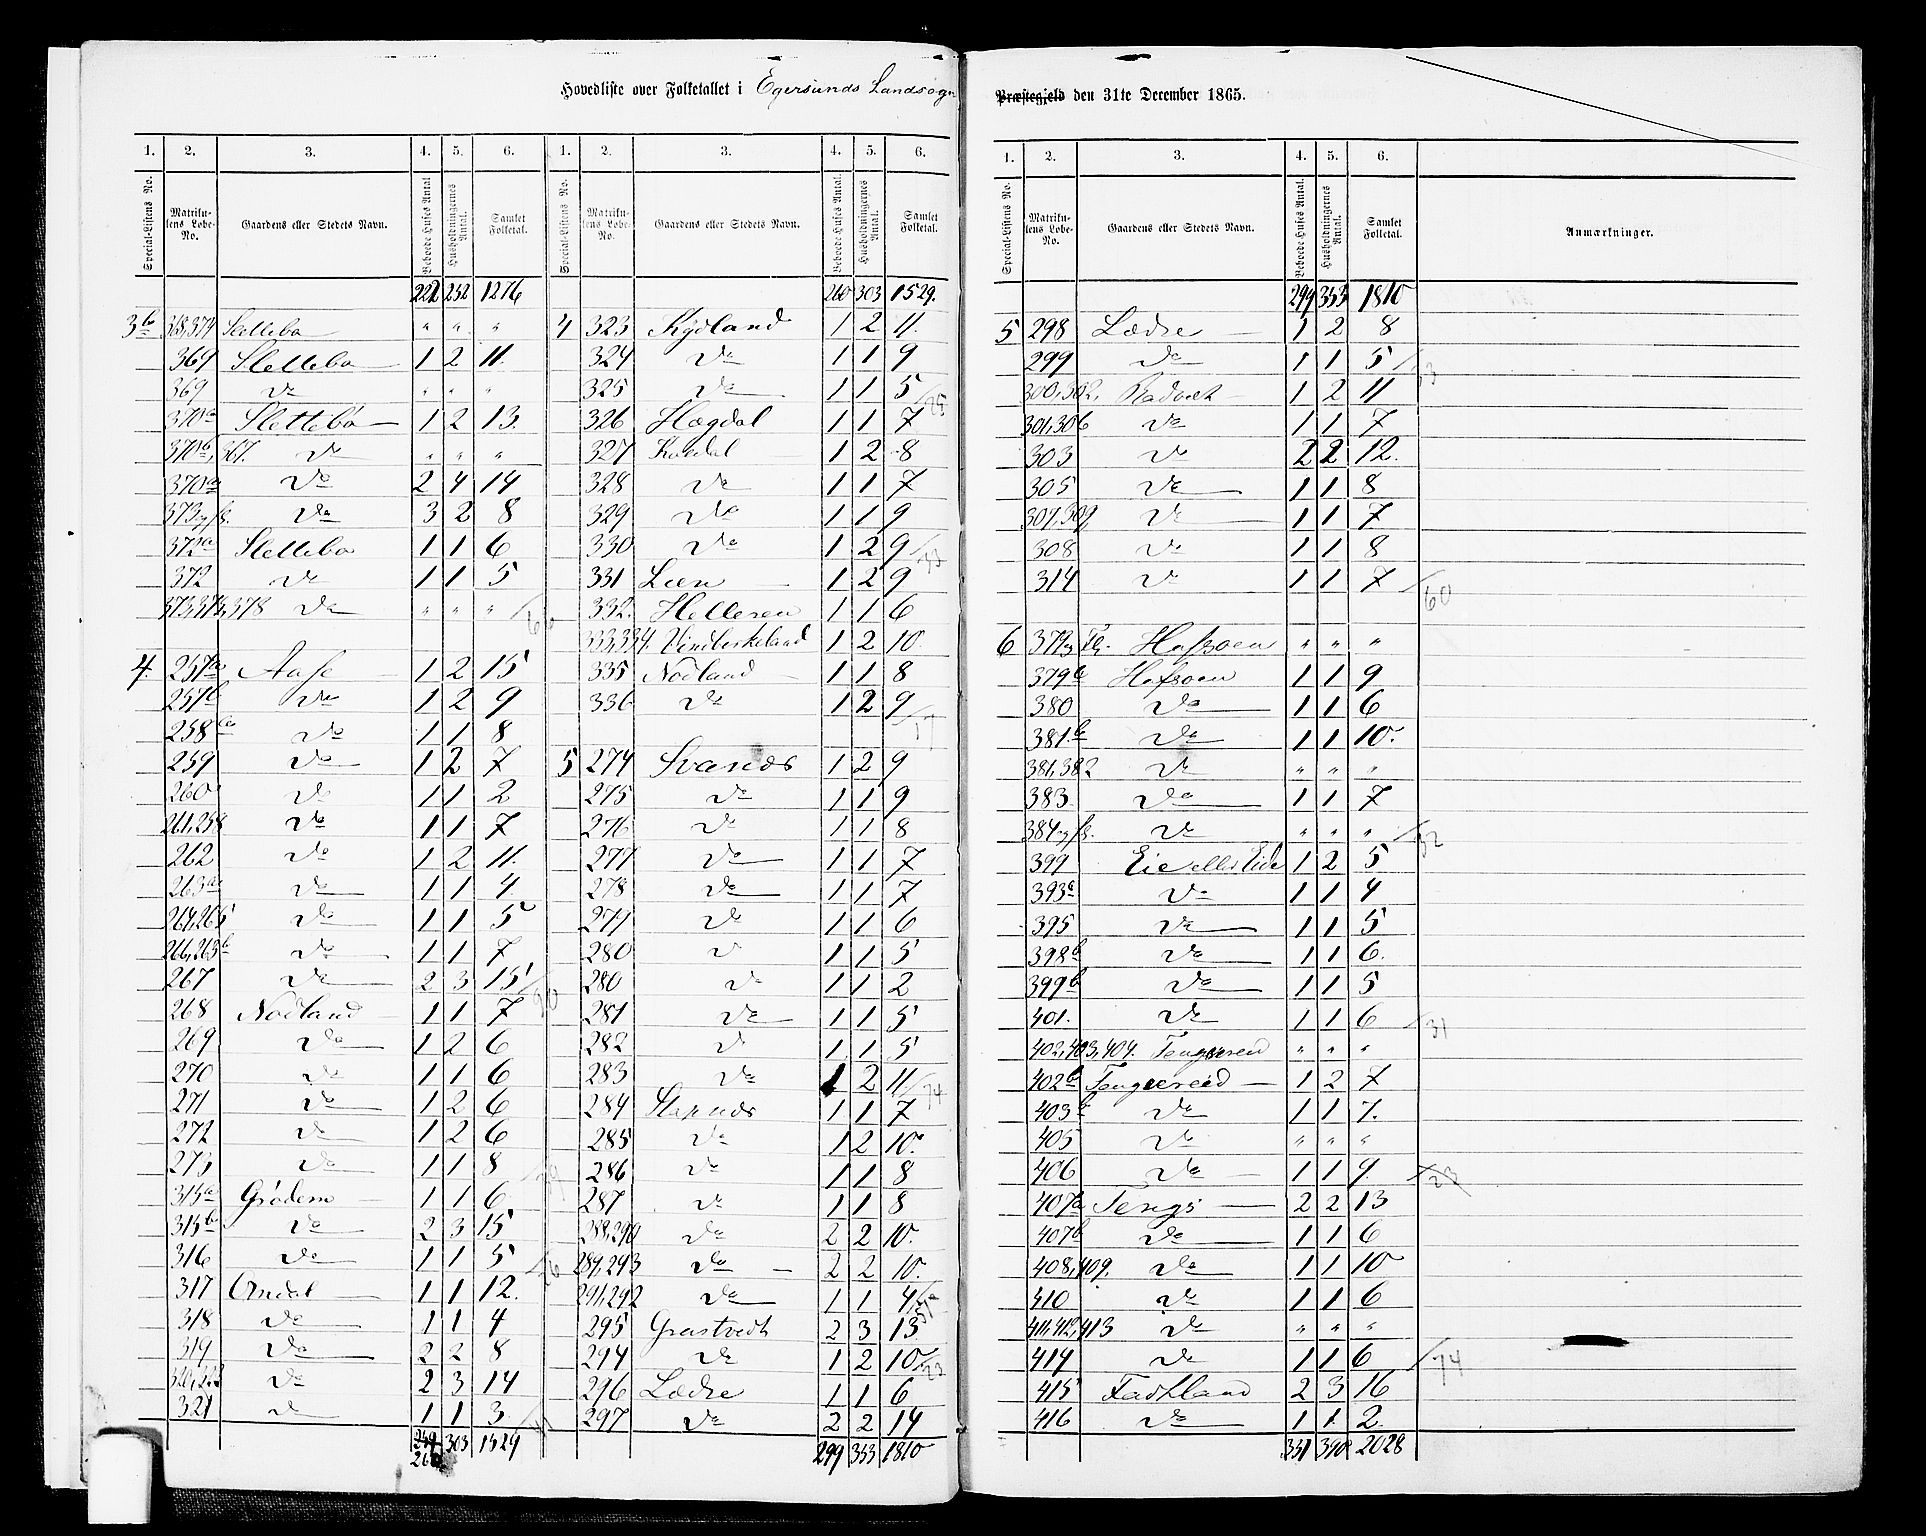 Hovedliste over Folketallet i Egersunds Landsogn
Præstegjeld den 31te December 1865.
1. 2. 3. 4. 5. 6. 1. 2. 3. 4. 5. 6.
Special-Listens No. Matrikulens Løbe-No. Gaardens eller Stedets Navn. Beboede Huses Antal Husholdningernes Antal. Samlet Folketal. Special-Listens No. Matrikulens Løbe-No. Gaardens eller Stedets Navn. Beboede Huses Antal. Husholdningernes Antal. Samlet Folketal.
222 252 1276
3b 368.374 Slettebø " " "
369 Slettebø 1 2 11.
369 do " " "
370a Slettebø 1 2 13.
370b, 367. do " " "
370 do 2 4 14
373 do 3 2 8
Slettebø 1 1 6
372 do 1 1 5
378 do " " "
4. 257a Aase 1 2 15
257b do 1 2 9
258a do 1 1 8
259 do 1 2 7
260 do 1 1 2
261,258 do 1 1 7
262 do 1 2 11.
263a do 1 1 4.
264,265 do 1 1 5
266,263b do 1 1 7
267 do 2 3 15
268 Nodland 1 1 7
269 do 1 2 6
270 do 1 1 6
271 do 1 2 6
272 do 1 2 6
273 do 1 1 8
315a Grødem 1 1 6
315b do 2 3 15
316 do 1 1 5
317 Omdal 1 1 12.
318 do 1 1 4
319 do 2 2 8
do 2 3 14
321 do 1 1 3
249 303 1529
260
260 303 1529.
4 323 Kydland 1 2 11.
324 do 1 1 9
325 do 1 1 5
25
326 Hægdal 1 1 7
327 1 2 8
328 do 1 1 7
329 do 1 1 9
330 do 1 2 9
331 Læn 1 2 9
332. Helleren 1 1 6
333,334. 1 2 10.
335 Nodland 1 1 8
336 do 1 2 9
5 274 Svanæs 1 2 9
275 do 1 1 9
276 do 1 1 8
277 do 1 1 7
278 do 1 1 7
do 1 1 6
280 do 1 1 5
280 do 1 1 2
281 do 1 1 5
282 do 1 1 5
283 do 1 2 11
74
284 Stapnæs 1 1 7
285 do 1 2 10.
286 do 1 1 8
287 do 1 1 8
288,290 do 2 2 10.
289,293 do 2 2 10.
291,292 do 1 1 4
295 Grastvedt 2 3 13
294 do 1 2 10
23
296 Lædre 1 1 6
297 do 2 2 14
299 353 1810
1. 2. 3. 4. 5. 6.
Special-Listens No. Matrikulens Løbe-No. Gaardens eller Stedets Navn. Beboede Huses Antal. Husholdningernes Antal. Samlet Folketal. Anmærkninger.
299 353 1810
5 298 Lædre 1 2 8
299 do 1 1 5
33
300,302, Radvek 1 2 11
301,306 do 1 1 7
303 do 2 2 12.
305 do 1 1 8
307,309, do 1 1 7
308 do 1 1 8
314 do 1 1 7
60
6 " " "
1 1 9
380 do 1 1 6
381.b do 1 1 10.
381,382 do " " "
383. do 1 1 7
384 do " " "
32
399 Eie eller Eide 1 2 5
393a do 1 1 4
395 do 1 1 5
398b do 1 1 6.
399b do 1 1 5
401. do 1 1 6
31
402,403,404. Tengsereid " " "
402b Tengsereid 1 2 7
403 do 1 1 7.
405 do " " "
406 do 1 1 9.
23
407a Tengs 2 2 13
407b do 1 1 6
408,409. do 1 1 10
410 do 1 1 6
411,412,413 do " " "
414 do 1 1 6
74
415 2 3 16
416 do 1 1 2
331 390 2028